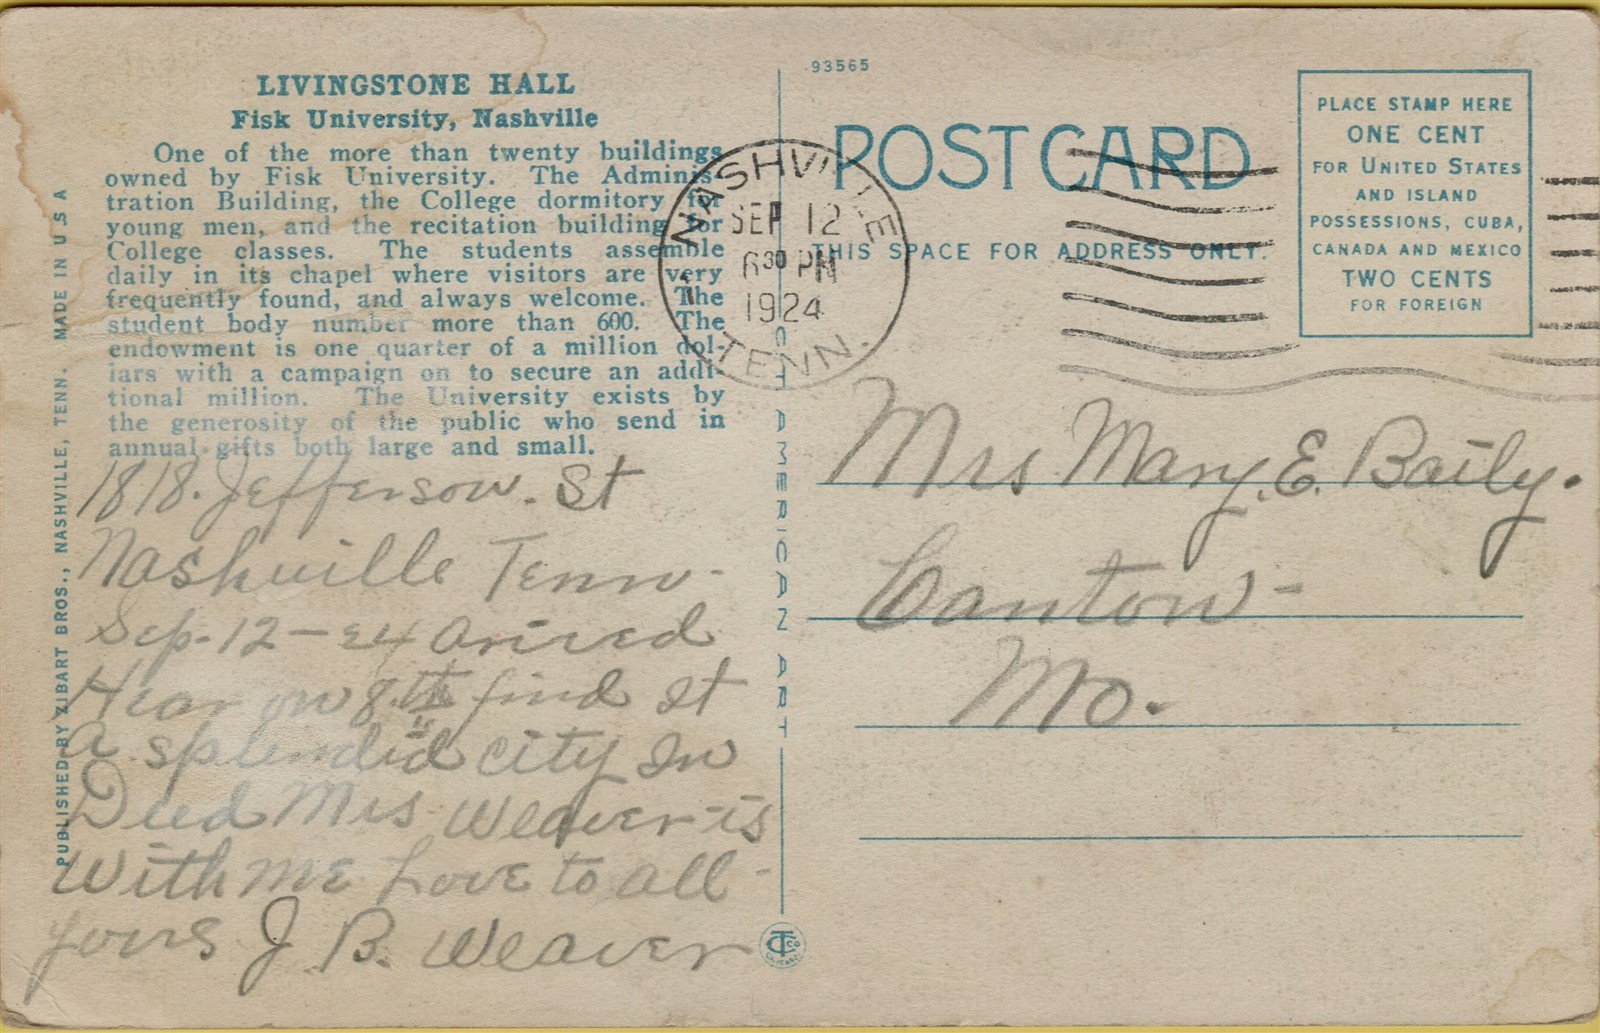 LIVINGSTONE HALL
Fisk University, Nashville
One of the more than twenty buildings
owned by Fisk University. The Adminis-
tration Building, the College dormitory for
young men, and the recitation building for
College classes. The students assemble
daily in its chapel where visitors are very
frequently found, and always welcome. The
student body number more than 600. The
endowment is one quarter of a million dol-
lars with a campaign on to secure an addi-
tional million. The University exists by
the generosity of the public who send in
annual gifts both large and small.
1818. Jefferson. St
Nashville Tenn-
Sep-12-24 arived
Hear on 8th find it
a splendid city In
Deed Mrs Weaver is
With me Love to all-
yours J. B. Weaver
PUBLISHED BY ZIBART BROS., NASHVILLE, TENN. MADE IN U S A
93565
POST CARD
THIS SPACE FOR ADDRESS ONLY.
NASHVILLE
SEP 12
630 PM
1924
TENN.
C T AMERICAN ART
PLACE STAMP HERE
ONE CENT
FOR UNITED STATES
AND ISLAND
POSSESSIONS, CUBA,
CANADA AND MEXICO
TWO CENTS
FOR FOREIGN
Mrs Mary. E. Baily.
Canton-
Mo.
CT Co
CHICAGO